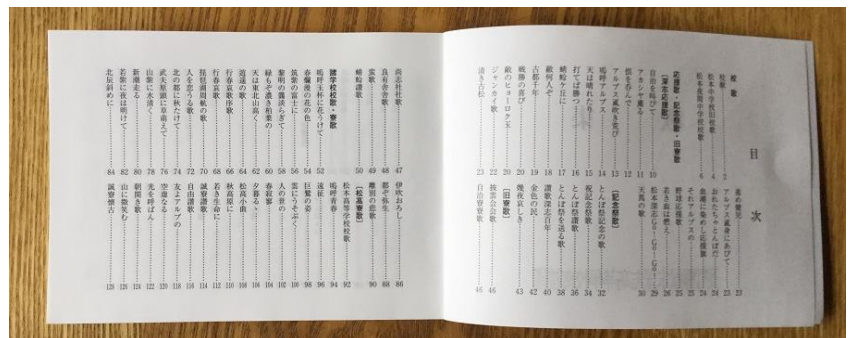 目次
校歌
校歌……2
松本中学校旧校歌……4
松本夜間中学校校歌……6
応援歌・記念祭歌・旧寮歌
〔深志応援歌〕
自治を叫びて……10
アカシヤ薫る……11
恨を呑んで……12
アルプス颪吹き荒び……13
嗚呼アルプス……14
天は晴れたり……15
打てば勝つ……16
蜻蛉ケ丘に……17
敵何人ぞ……18
古都千年……19
戦勝の喜び……20
敵のヒョーロク玉……20
ジャンカイ歌……22
清き古松……23
進め健児……23
アルプス直身にあびて……23
おれたちゃとんぼだ……24
血潮に染めし応援旗……24
それアルプスの……25
野球応援歌……25
若き血は燃え……26
松本深志Go-Go-Go……29
天馬の歌……30
〔記念祭歌〕
とんぼ祭記念の歌……32
祝記念祭歌……34
とんぼ祭讃歌……36
とんぼ祭を送る歌……38
讃歌深志百年……40
金色の民……42
幾夜哀しき……43
〔旧寮歌〕
披雲会会歌……46
自治寮寮歌……46
尚志社社歌……47
良有舎舎歌……48
寮歌……49
蜻蛉讃歌……50
諸学校校歌・寮歌
嗚呼玉杯に花うけて……52
春爛漫の花の色……54
筑紫の富士に……56
黎明の靄淡らぎて……58
緑もぞ濃き柏葉の……60
天は東北山高く……62
逍遥の歌……64
行春哀歌序歌……66
行春哀歌……68
琵琶湖周航の歌……70
人を恋うる歌……72
北の都に秋たけて……74
武夫原頭に草萌えて……76
山紫に水清く……78
新潮走る……80
若紫に夜は明けて……82
北辰斜めに……84
伊吹おろし……86
都ぞ弥生……88
離別の悲歌……90
〔松高寮歌〕
松本高等学校校歌……92
嗚呼青春……94
遠征……96
巨鷲の姿……98
雲にうそぶく……100
人の世の……102
春寂寥……104
夕暮るゝ……106
松高小曲……108
秋高原に……110
若き生命に……112
誠寮讃歌……114
自由讃歌……116
友よアルプスの……118
空虚なる……120
光を呼ばん……122
朝開き歌……124
山に微笑む……126
誠寮懐古……128